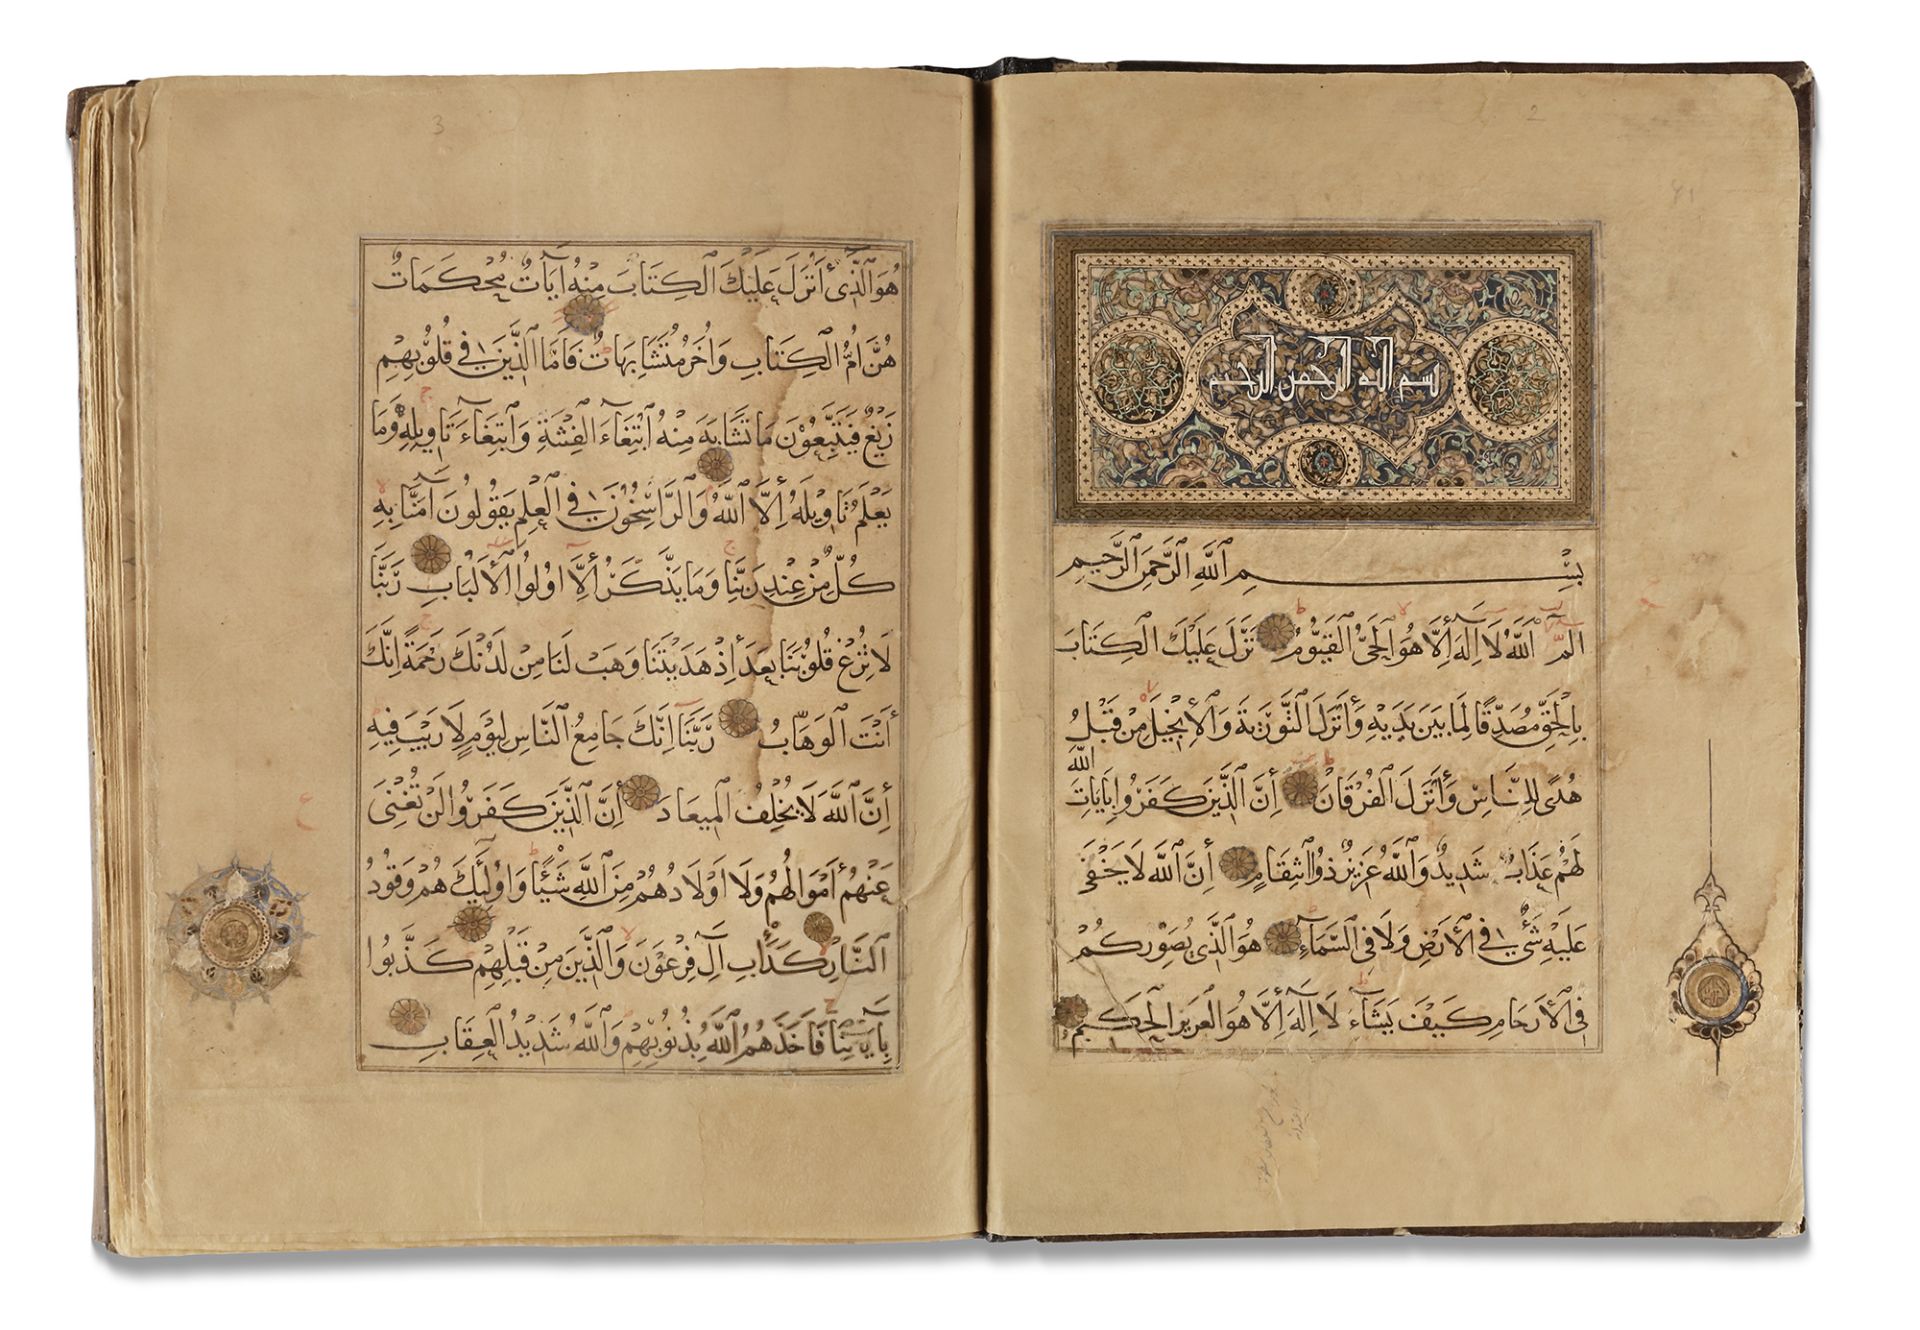 2
بسم الله الرحمن الرحيم
بِسْمِ اللَّهِ الرَّحْمَنِ الرَّحِيمِ
الم اللَّهُ لَا إِلَهَ إِلَّا هُوَ الْحَيُّ الْقَيُّومُ نَزَّلَ عَلَيْكَ الْكِتَابَ
بِالْحَقِّ مُصَدِّقًا لِمَا بَيْنَ يَدَيْهِ وَأَنْزَلَ التَّوْرَيةَ وَالْإِنْجِيلَ مِنْ قَبْلُ
هُدًى لِلنَّاسِ وَأَنْزَلَ الْفُرْقَانَ إِنَّ الَّذِينَ كَفَرُوا بِآيَاتِ اللَّهِ
لَهُمْ عَذَابٌ شَدِيدٌ وَاللَّهُ عَزِيزٌ ذُو انْتِقَامٍ إِنَّ اللَّهَ لَا يَخْفَى
عَلَيْهِ شَيْءٌ فِي الْأَرْضِ وَلَا فِي السَّمَاءِ هُوَ الَّذِي يُصَوِّرُكُمْ
فِي الْأَرْحَامِ كَيْفَ يَشَاءُ لَا إِلَهَ إِلَّا هُوَ الْعَزِيزُ الْحَكِيمُ
3
هُوَ الَّذِي أَنْزَلَ عَلَيْكَ الْكِتَابَ مِنْهُ آيَاتٌ مُحْكَمَاتٌ
هُنَّ أُمُّ الْكِتَابِ وَأُخَرُ مُتَشَابِهَاتٌ فَأَمَّا الَّذِينَ فِي قُلُوبِهِمْ
زَيْغٌ فَيَتَّبِعُونَ مَا تَشَابَهَ مِنْهُ ابْتِغَاءَ الْفِتْنَةِ وَابْتِغَاءَ تَأْوِيلِهِ وَمَا
يَعْلَمُ تَأْوِيلَهُ إِلَّا اللَّهُ وَالرَّاسِخُونَ فِي الْعِلْمِ يَقُولُونَ آمَنَّا بِهِ
كُلٌّ مِنْ عِنْدِ رَبِّنَا وَمَا يَذَّكَّرُ إِلَّا أُولُوا الْأَلْبَابِ رَبَّنَا
لَا تُزِغْ قُلُوبَنَا بَعْدَ إِذْ هَدَيْتَنَا وَهَبْ لَنَا مِنْ لَدُنْكَ رَحْمَةً إِنَّكَ
أَنْتَ الْوَهَّابُ رَبَّنَا إِنَّكَ جَامِعُ النَّاسِ لِيَوْمٍ لَا رَيْبَ فِيهِ
إِنَّ اللَّهَ لَا يُخْلِفُ الْمِيعَادَ إِنَّ الَّذِينَ كَفَرُوا لَنْ تُغْنِيَ
عَنْهُمْ أَمْوَالُهُمْ وَلَا أَوْلَادُهُمْ مِنَ اللَّهِ شَيْئًا وَأُولَئِكَ هُمْ وَقُودُ
النَّارِ كَدَأْبِ آلِ فِرْعَوْنَ وَالَّذِينَ مِنْ قَبْلِهِمْ كَذَّبُوا
بِآيَاتِنَا فَأَخَذَهُمُ اللَّهُ بِذُنُوبِهِمْ وَاللَّهُ شَدِيدُ الْعِقَابِ